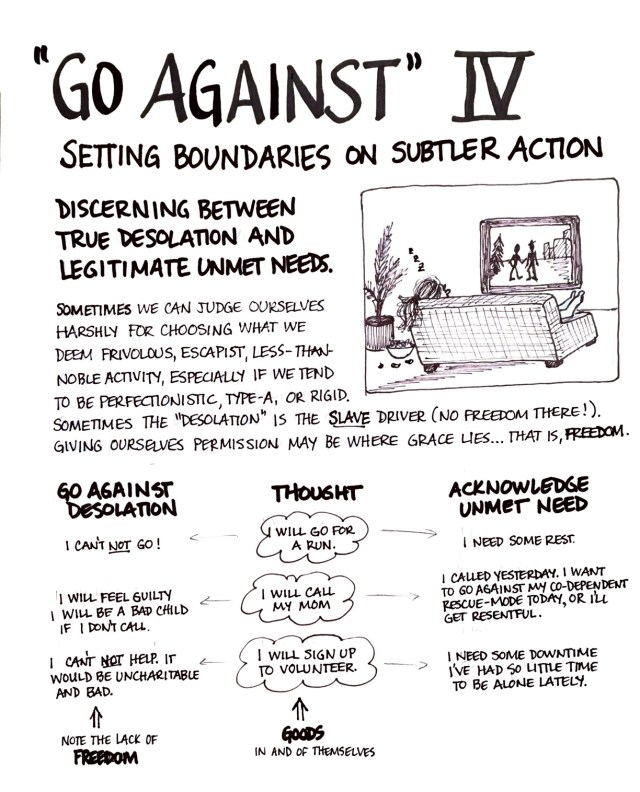 "GO AGAINST" IV
SETTING BOUNDARIES ON SUBTLER ACTION
DISCERNING BETWEEN
TRUE DESOLATION AND
LEGITIMATE UNMET NEEDS.
SOMETIMES WE CAN JUDGE OURSELVES
HARSHLY FOR CHOOSING WHAT WE
DEEM FRIVOLOUS, ESCAPIST, LESS-THAN-
NOBLE ACTIVITY, ESPECIALLY IF WE TEND
TO BE PERFECTIONISTIC, TYPE-A, OR RIGID.
SOMETIMES THE "DESOLATION" IS THE SLAVE DRIVER (NO FREEDOM THERE!).
GIVING OURSELVES PERMISSION MAY BE WHERE GRACE LIES... THAT IS, FREEDOM.
z z z
GO AGAINST
DESOLATION
I CAN'T NOT GO!
I WILL FEEL GUILTY
I WILL BE A BAD CHILD
IF I DON'T CALL.
I CAN'T NOT HELP. IT
WOULD BE UNCHARITABLE
AND BAD.
NOTE THE LACK OF
FREEDOM
THOUGHT
I WILL GO FOR
A RUN.
I WILL CALL
MY MOM
I WILL SIGN UP
TO VOLUNTEER.
GOODS
IN AND OF THEMSELVES
ACKNOWLEDGE
UNMET NEED
I NEED SOME REST.
I CALLED YESTERDAY. I WANT
TO GO AGAINST MY CO-DEPENDENT
RESCUE-MODE TODAY, OR I'LL
GET RESENTFUL.
I NEED SOME DOWNTIME
I'VE HAD SO LITTLE TIME
TO BE ALONE LATELY.